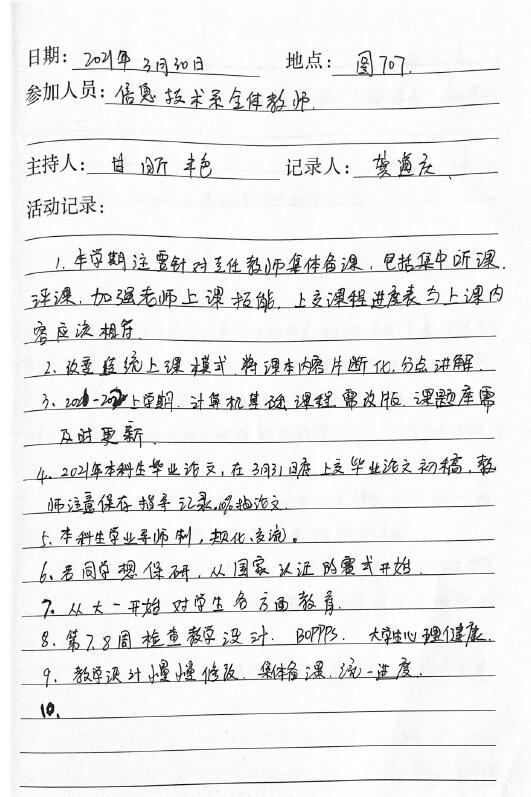 日期: 2021年3月30日 地点: 图707.
参加人员: 信息技术系全体教师.
主持人: 甘 记录人: 龚
活动记录:
1. 本学期注重针对主任教师集体备课, 包括集中听课
评课, 加强老师上课技能. 上交课程进度表与上课内
容应该相符.
2. 改变 统上课模式. 将课本内容片断化, 分点讲解.
3. 上学期. 计算机基础课程需改版. 课题库需
及时更新.
4. 2021年本科生毕业论文, 在3月31日底上交毕业论文初稿, 教
师注意保存指导记录. 抽论文.
5. 本科生学业导师制, 交流。
6. 若同学想保研, 从国家认证的赛式开始.
7. 从大一开始对学生各方面教育.
8. 第7.8周检查教学设计. BOPPPS. 大学生心理健康.
9. 教学设计慢慢修改. 集体备课. 统一进度.
10.